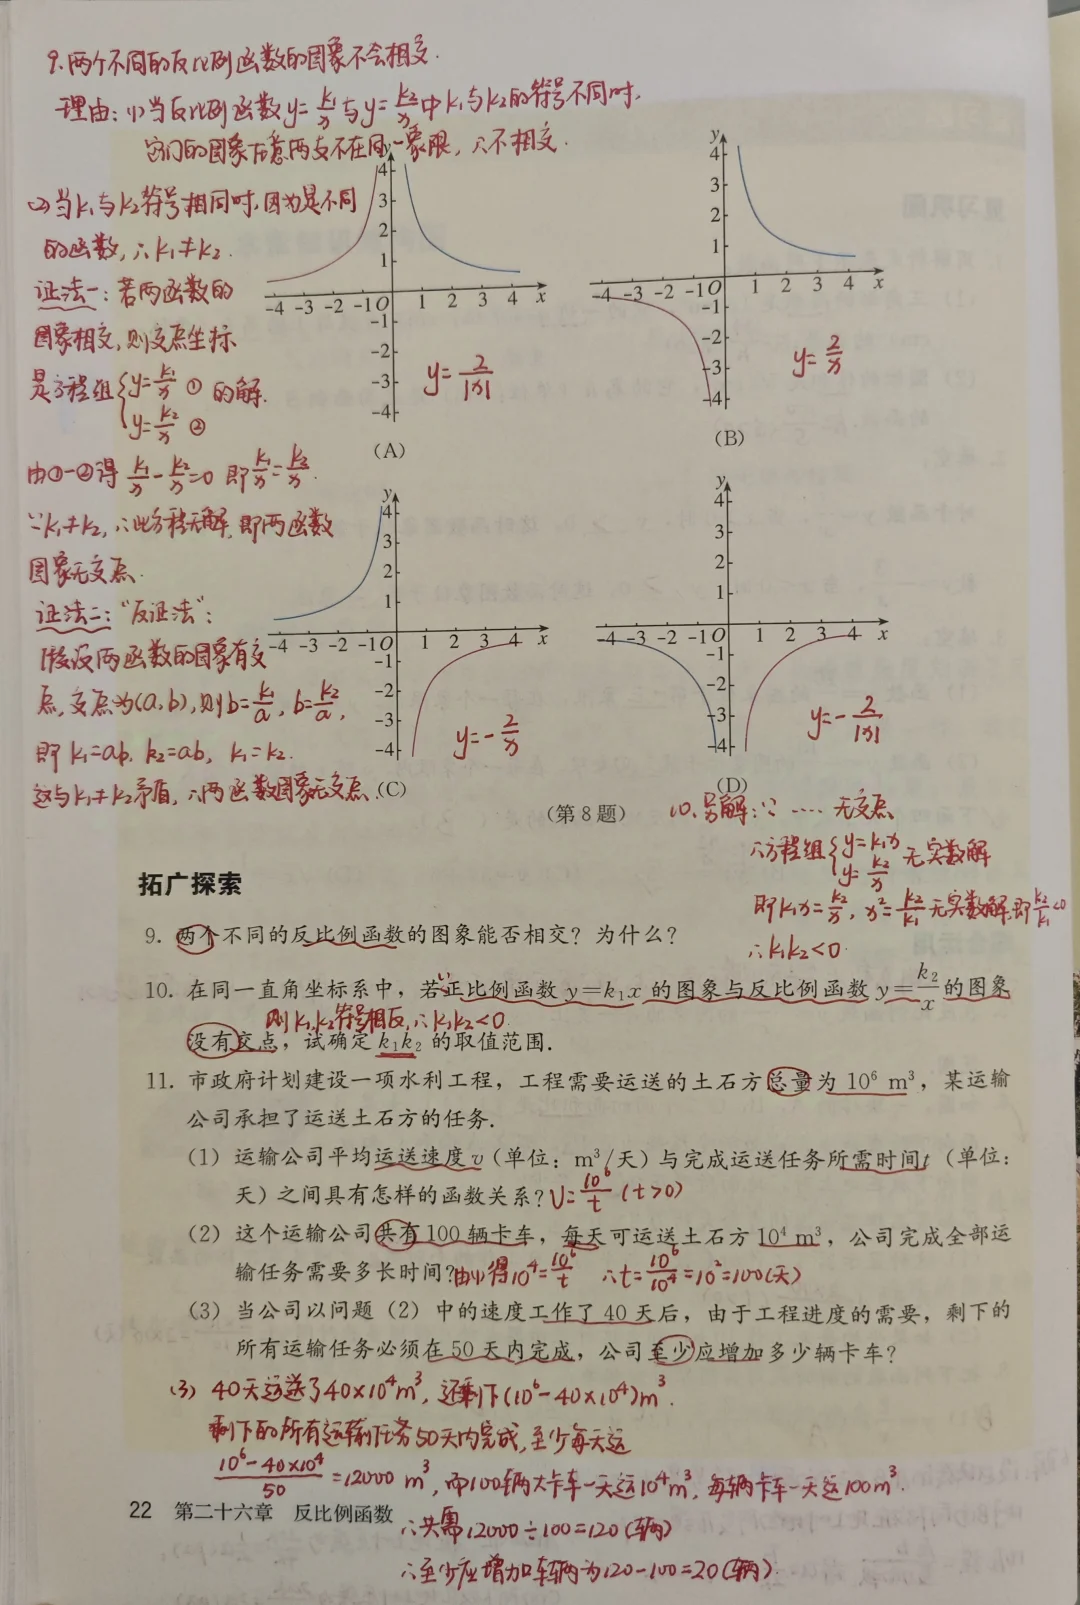 9.两个不同的反比例函数的图象不会相交.
理由:(1)当反比例函数y=k₁/x与y=k₂/x中k₁与k₂的符号不同时,
它们的图象任意两支不在同一象限,∴不相交.
(2)当k₁与k₂符号相同时,因为是不同
的函数,∴k₁≠k₂.
证法一:若两函数的
图象相交,则交点坐标
是方程组{y=k₁/x ① 的解.
y=k₂/x ②
由①-②得 k₁/x-k₂/x=0 即k₁/x=k₂/x.
∵k₁≠k₂,∴此方程无解,即两函数
图象无交点.
证法二:“反证法”:
假设两函数的图象有交
点,交点为(a,b),则b=k₁/a,b=k₂/a,
即k₁=ab,k₂=ab,k₁=k₂.
这与k₁≠k₂矛盾,∴两函数图象无交点.
y
4
3
2
1
-4 -3 -2 -1 O 1 2 3 4 x
-1
-2
-3
-4
y=2/|x|
(A)
y
4
3
2
1
-4 -3 -2 -1 O 1 2 3 4 x
-1
-2
-3
-4
y=2/x
(B)
y
4
3
2
1
-4 -3 -2 -1 O 1 2 3 4 x
-1
-2
-3
-4
y=-2/x
(C)
y
4
3
2
1
-4 -3 -2 -1 O 1 2 3 4 x
-1
-2
-3
-4
y=-2/|x|
(D)
(第8题)
10.另解:∵……无交点
∴方程组{y=k₁x
y=k₂/x 无实数解
即k₁x=k₂/x,x²=k₂/k₁无实数解,即k₂/k₁<0
∴k₁k₂<0.
拓广探索
9. 两个不同的反比例函数的图象能否相交？为什么？
10. 在同一直角坐标系中，若正比例函数 y=k₁x 的图象与反比例函数 y=k₂/x 的图象
则k₁,k₂符号相反,∴k₁k₂<0.
没有交点，试确定 k₁k₂ 的取值范围.
11. 市政府计划建设一项水利工程，工程需要运送的土石方总量为 10⁶ m³，某运输
公司承担了运送土石方的任务.
(1) 运输公司平均运送速度 v（单位：m³/天）与完成运送任务所需时间t（单位：
天）之间具有怎样的函数关系？v=10⁶/t (t>0)
(2) 这个运输公司共有 100 辆卡车，每天可运送土石方 10⁴ m³，公司完成全部运
输任务需要多长时间？由(1)得10⁴=10⁶/t ∴t=10⁶/10⁴=10²=100(天)
(3) 当公司以问题（2）中的速度工作了 40 天后，由于工程进度的需要，剩下的
所有运输任务必须在 50 天内完成，公司至少应增加多少辆卡车？
(3) 40天运送了40×10⁴m³,还剩下(10⁶-40×10⁴)m³.
剩下的所有运输任务50天内完成,至少每天运
10⁶-40×10⁴/50=12000 m³,而100辆大卡车一天运10⁴m³,每辆卡车一天运100m³.
∴共需12000÷100=120(辆)
∴至少应增加车辆为120-100=20(辆).
22 第二十六章 反比例函数